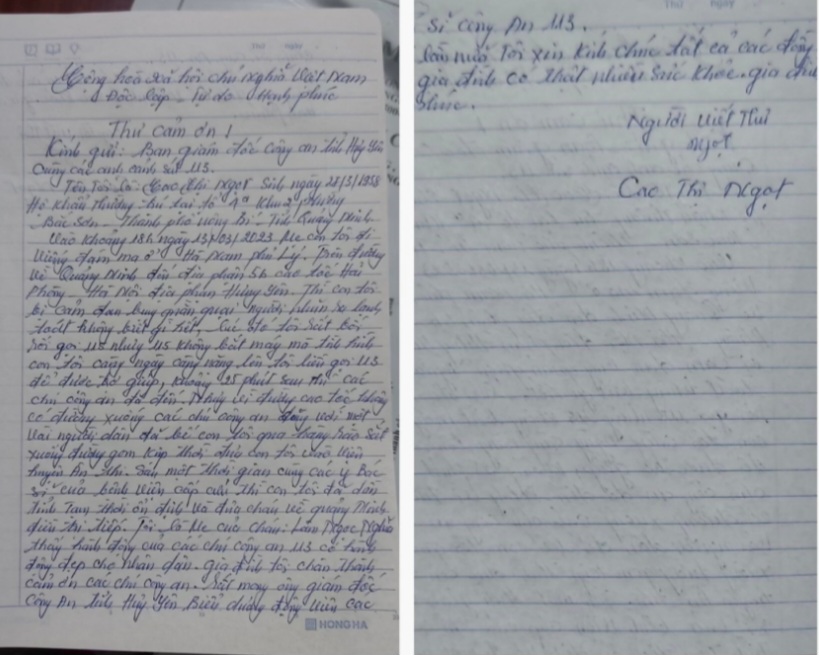 Thứ ngày
Cộng hoà xã hội chủ nghĩa Việt Nam
Độc lập - Tự do - Hạnh phúc
Thư cảm ơn!
Kính gửi: Ban giám đốc công an tỉnh Hưng Yên
Cùng các anh cảnh sát 113.
Tên Tôi là: Cao Thị Ngọt Sinh ngày 28/3/1958
Hộ khẩu thường trú tại tổ 4a Khu 2 phường
Bắc Sơn - Thành phố Uông Bí - Tỉnh Quảng Ninh
Vào khoảng 18h ngày 13/03/2023 Mẹ con tôi đi
Viếng đám ma ở Hà Nam phủ Lý. Trên đường
Về Quảng Ninh đến địa phận 5b cao tốc Hải
Phòng - Hà Nội địa phận Hưng Yên - Thì con tôi
bị cảm đau bụng quằn quại người
toát không biết gì hết, lúc đó tôi rất bối
rối gọi 115 nhưng 115 không bắt máy mà tình hình
con tôi càng ngày càng nặng lên tôi liền gọi 113
để được trợ giúp, khoảng 25 phút sau thì các
chú công an đã đến. Nhưng vì đường cao tốc không
có đường xuống các chú công an cùng với một
vài người dân đã bế con tôi qua hàng rào sắt
xuống đường gom kịp thời đưa con tôi vào viện
huyện Ân Thi. Sau một thời gian cùng các y Bác
sĩ của bệnh viện cấp cứu thì con tôi đã dần
tỉnh Tạm thời ổn định và đưa cháu về quảng Ninh
điều trị tiếp. Tôi là Mẹ của cháu: Lâm Ngọc Nghĩa
thấy hành động của các chú công an 113 có hành
động đẹp cho nhân dân. gia đình tôi chân thành
cảm ơn các chú công an. Rất mong ông giám đốc
Công An tỉnh Hưng Yên Biểu dương động viên các
HONG HA
Thứ ngày
sĩ công An 113.
lần nữa Tôi xin kính chúc tất cả các đồng
gia đình có thật nhiều Sức khỏe. gia đình
phúc.
Người viết Thư
Ngọt
Cao Thị Ngọt